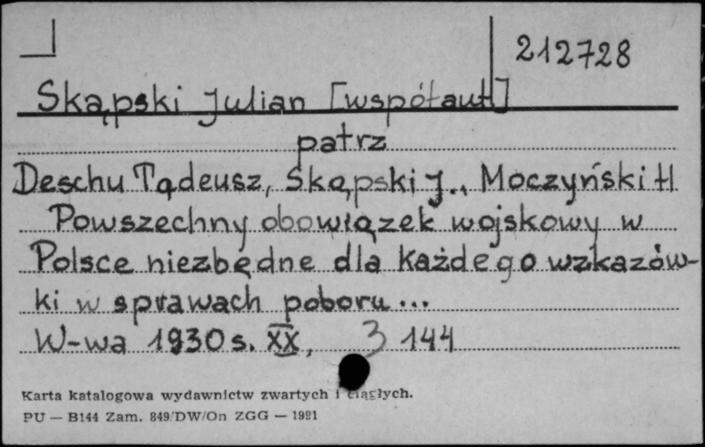 212728
Skąpski Julian [współaut]
patrz
Deschu Tadeusz, Skąpski J., Moczyński H
Powszechny obowiązek wojskowy w
Polsce niezbędne dla każdego wzkazów-
ki w sprawach poboru...
W-wa 1930 s. XX, 3 144
Karta katalogowa wydawnictw zwartych i ciągłych.
PU — B144 Zam. 849/DW/On ZGG — 1981